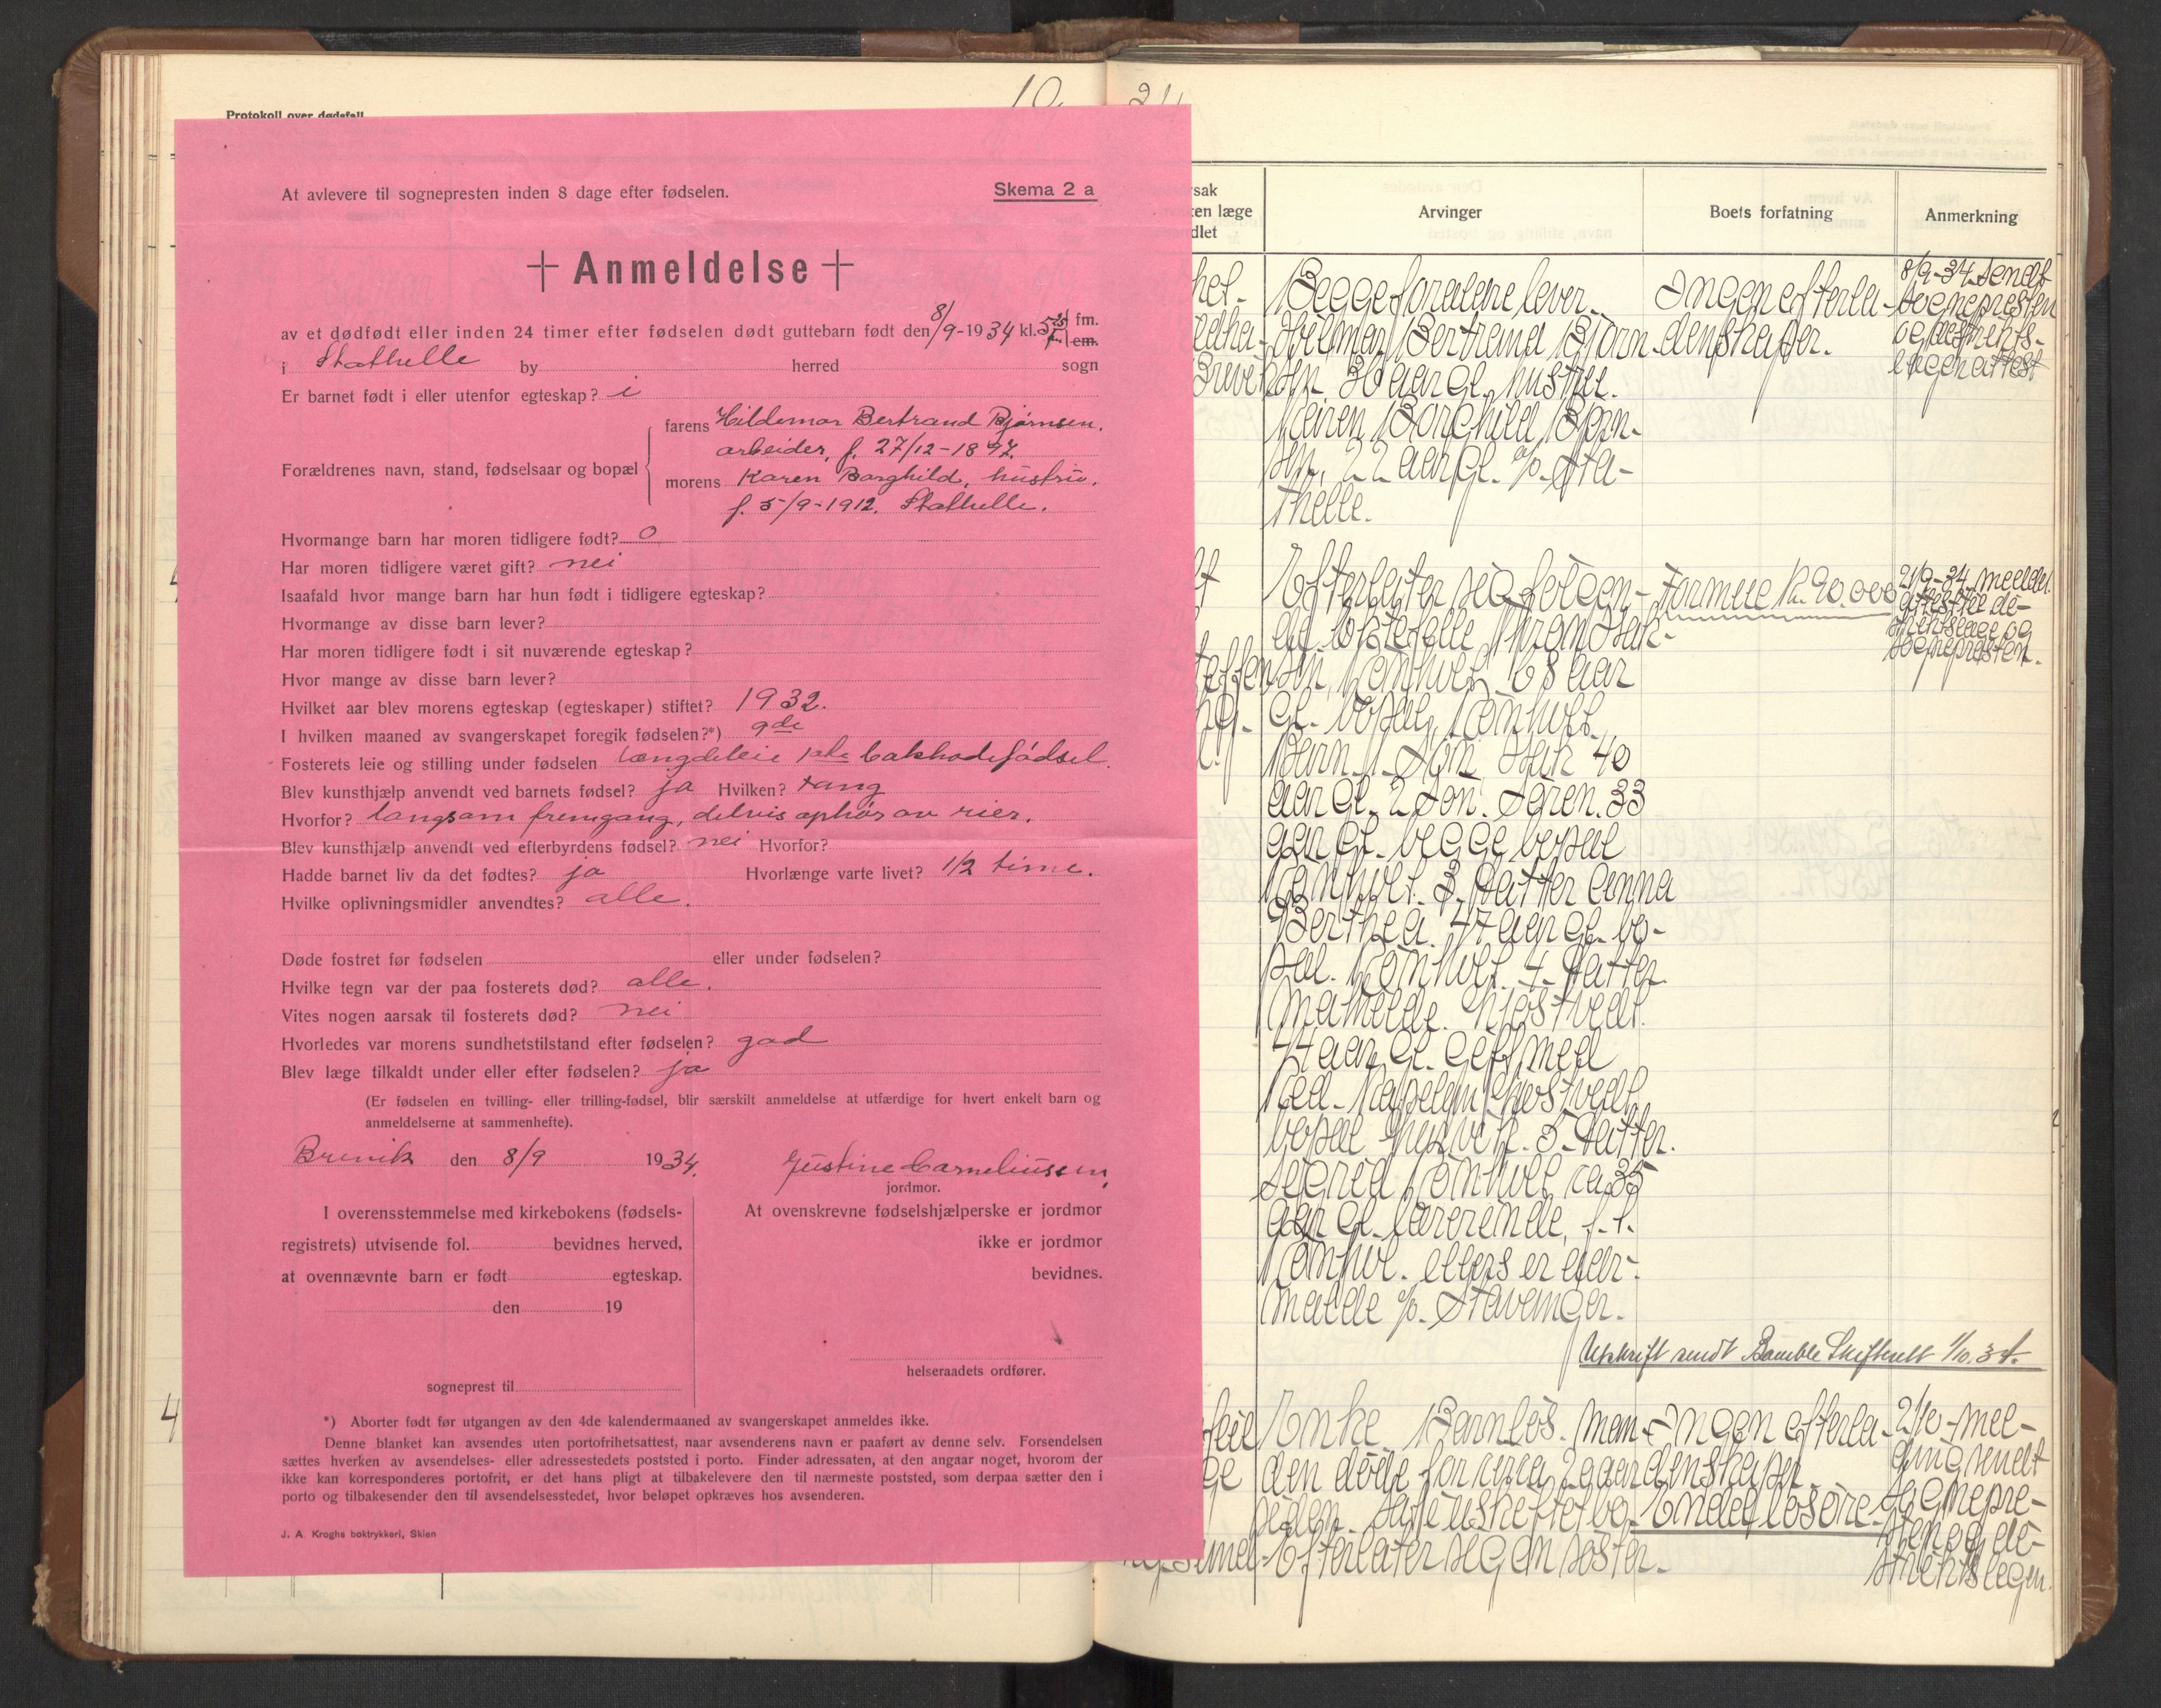 Protokoll over dødsfall
10
At avlevere til sognepresten inden 8 dage efter fødselen. Skema 2 a
Anmeldelse
av et dødfødt eller inden 24 timer efter fødselen dødt guttebarn født den 8/9-1934 kl. fm. em.
i Stathelle by herred sogn
Er barnet født i eller utenfor egteskap? i
farens Hildemar Bertrand Bjørnsen.
arbeider, f. 27/12-1897.
Forældrenes navn, stand, fødselsaar og bopæl
morens Karen Borghild, hustru.
f. 5/9-1912. Stathelle.
Hvormange barn har moren tidligere født? 0
Har moren tidligere været gift? nei
Isaafald hvor mange barn har hun født i tidligere egteskap?
Hvormange av disse barn lever?
Har moren tidligere født i sit nuværende egteskap?
Hvor mange av disse barn lever?
Hvilket aar blev morens egteskap (egteskaper) stiftet? 1932.
I hvilken maaned av svangerskapet foregik fødselen?*) 9de
Fosterets leie og stilling under fødselen længdeleie 1ste bakhodefødsel.
Blev kunsthjælp anvendt ved barnets fødsel? ja Hvilken? tang
Hvorfor? langsom fremgang, delvis ophør av rier.
Blev kunsthjælp anvendt ved efterbyrdens fødsel? nei Hvorfor?
Hadde barnet liv da det fødtes? ja Hvorlænge varte livet? 1/2 time.
Hvilke oplivningsmidler anvendtes? alle.
Døde fostret før fødselen eller under fødselen?
Hvilke tegn var der paa fosterets død? alle.
Vites nogen aarsak til fosterets død? nei
Hvorledes var morens sundhetstilstand efter fødselen? god
Blev læge tilkaldt under eller efter fødselen? ja
(Er fødselen en tvilling- eller trilling-fødsel, blir særskilt anmeldelse at utfærdige for hvert enkelt barn og
anmeldelserne at sammenhefte).
Brevik den 8/9 1934. Justine Corneliussen,
jordmor.
I overensstemmelse med kirkebokens (fødsels-
registrets) utvisende fol. bevidnes herved,
at ovennævnte barn er født egteskap.
den 19
sogneprest til
At ovenskrevne fødselshjælperske er jordmor
ikke er jordmor
bevidnes.
helseraadets ordfører.
*) Aborter født før utgangen av den 4de kalendermaaned av svangerskapet anmeldes ikke.
Denne blanket kan avsendes uten portofrihetsattest, naar avsenderens navn er paaført av denne selv. Forsendelsen
sættes hverken av avsendelses- eller adressestedets poststed i porto. Finder adressaten, at den angaar noget, hvorom der
ikke kan korresponderes portofrit, er det hans pligt at tilbakelevere den til nærmeste poststed, som derpaa sætter den i
porto og tilbakesender den til avsendelsesstedet, hvor beløpet opkræves hos avsenderen.
J. A. Kroghs boktrykkeri, Skien
sak
en læge
dlet
Arvinger
Boets forfatning
Anmerkning
Begge foreldrene lever.
Hilmar Bertrand Bjørn-
sen. 36 aar gl. hustru.
Karen Borghild Bjørn-
sen, 22 aar gl. p. Sta-
thelle.
Ingen efterla-
denskaper.
8/9-34 sendt
sognepresten
og
legenattest
Efterlater sig følgen-
de
68 aar
gl. bopæl
Barn 1. Søn Isak 40
aar gl. 2 Søn. Søren. 33
aar gl. begge bopæl
3. Datter Anna
Berthea. 47 aar gl. bo-
pæl. 4. Datter
Mathilde.
44 aar gl. gift med
bopæl 5. Datter.
Sigrid ca 35
aar gl. lærerinde, f. t.
p. Stavanger.
Formue kr. 90.000
21/9-34 meddel.
sognepresten.
Utskrift sendt Bamble Skifterett 1/10.34.
Enke. Barnløs. Man-
den døde for circa 2 aar
siden.
Efterlater seg en søster.
Ingen efterla-
denskaper.
Endel løsøre.
2/10-mel-
ding sendt
sognepre-
sten og di-
striktslegen.